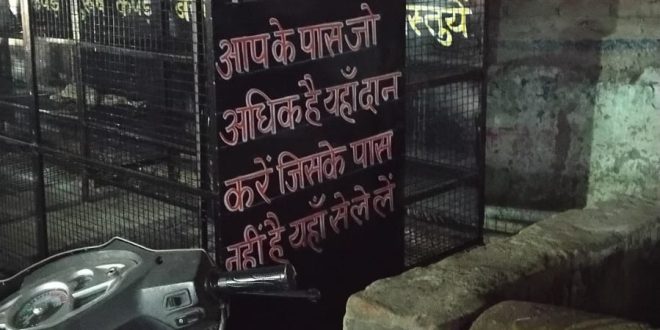 आप के पास जो
अधिक है यहाँ दान
करें जिसके पास
नहीं है यहाँ से ले लें